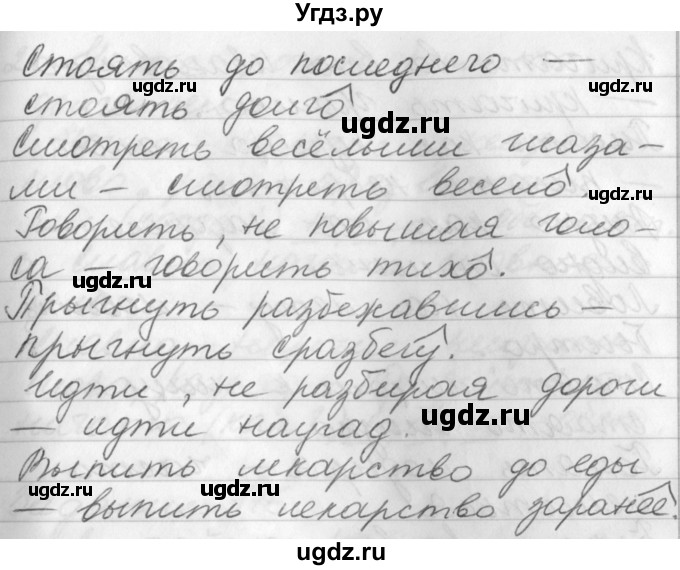 Угдз.ру
Стоять до последнего —
стоять долго
Смотреть весёлыми глаза-
ми – смотреть весело.
Говорить, не повышая голо-
са – говорить тихо.
Прыгнуть разбежавшись –
прыгнуть сразбегу.
Идти, не разбирая дороги
– идти наугад.
Выпить лекарство до еды
– выпить лекарство заранее.
ugdz.ru
ugdz.ru
ugdz.ru
ugdz.ru
ugdz.ru
ugdz.ru
ugdz.ru
ugdz.ru
ugdz.ru